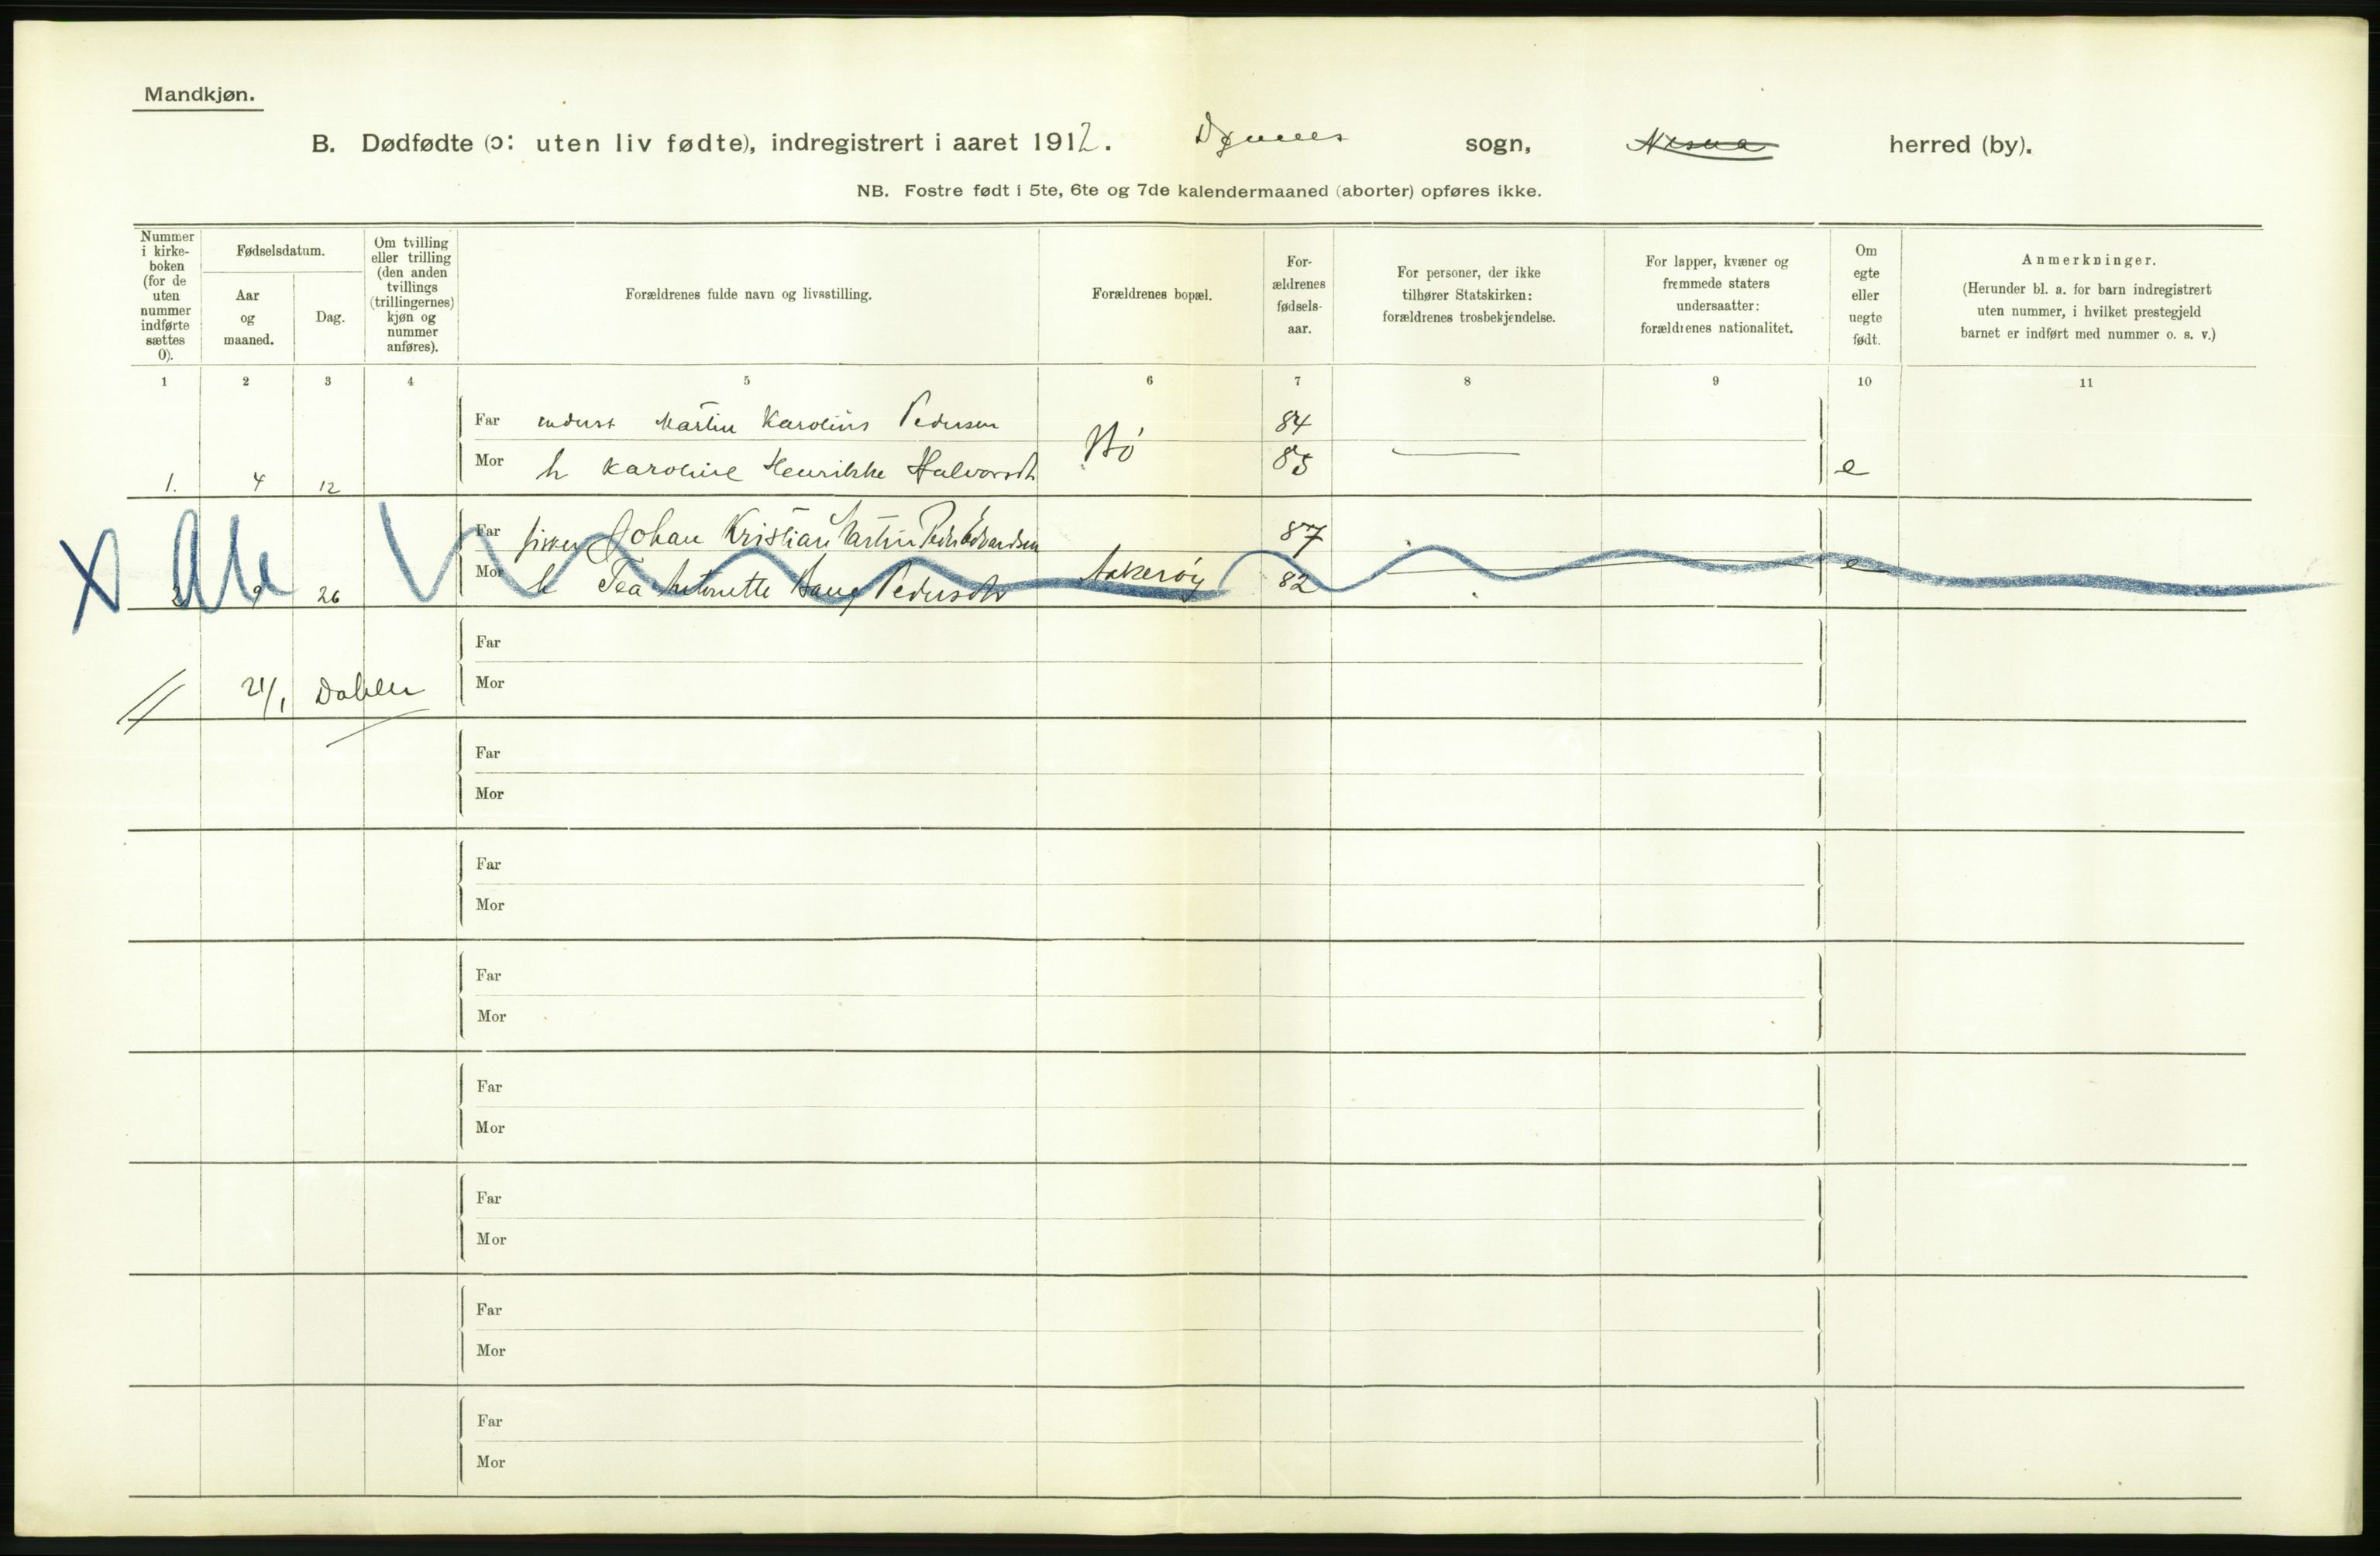 Mandkjøn.
B. Dødfødte (ɔ: uten liv fødte), indregistrert i aaret 1912. Dønnes sogn, Nesna herred (by).
NB. Fostre født i 5te, 6te og 7de kalendermaaned (aborter) opføres ikke.
Nummer i kirke-boken (for de uten nummer indførte sættes 0).
Fødselsdatum.
Aar og maaned.
Dag.
Om tvilling eller trilling (den anden tvillings (trillingernes) kjøn og nummer anføres).
Forældrenes fulde navn og livsstilling.
Forældrenes bopæl.
For-ældrenes fødsels-aar.
For personer, der ikke tilhører Statskirken: forældrenes trosbekjendelse.
For lapper, kvæner og fremmede staters undersaatter: forældrenes nationalitet.
Om egte eller uegte født.
Anmerkninger.
(Herunder bl. a. for barn indregistrert uten nummer, i hvilket prestegjeld barnet er indført med nummer o. s. v.)
1 2 3 4 5 6 7 8 9 10 11
Far Martin Karolius Pedersen 84
1. 4 12 Mor h Karoline Henrikke Halvorsdt Bø 85 e
Far fisker Johan Kristian Martin Peder Edvardsen 87
X 2 9 26 Mor h Tea Antonette Haug Pedersdtr Aakerøy 82 e
Far
21/1 Dahlen Mor
Far
Mor
Far
Mor
Far
Mor
Far
Mor
Far
Mor
Far
Mor
Far
Mor